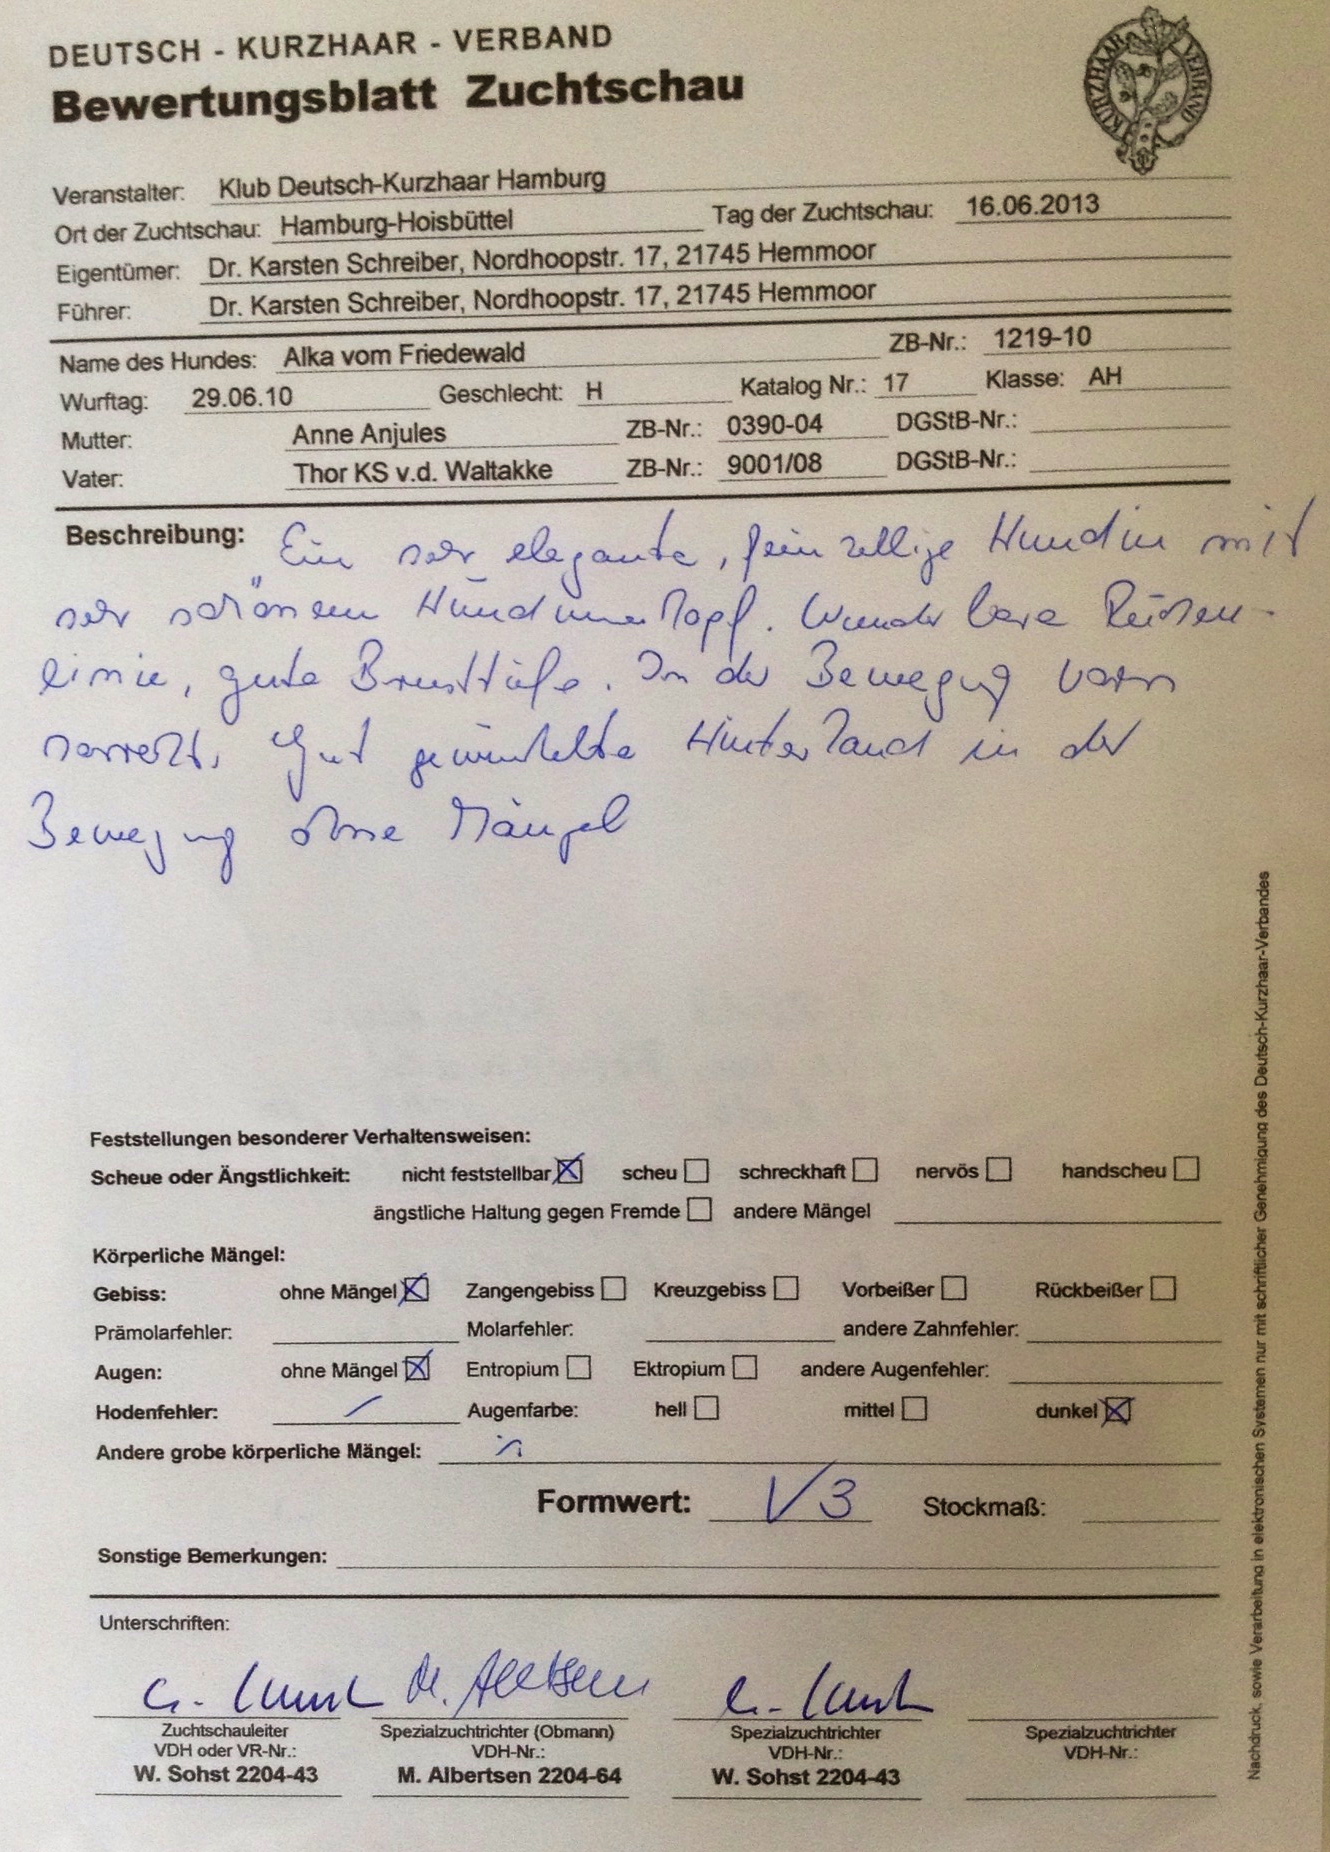 DEUTSCH - KURZHAAR - VERBAND
Bewertungsblatt Zuchtschau
KURZHAAR VERBAND
Veranstalter: Klub Deutsch-Kurzhaar Hamburg
Ort der Zuchtschau: Hamburg-Hoisbüttel Tag der Zuchtschau: 16.06.2013
Eigentümer: Dr. Karsten Schreiber, Nordhoopstr. 17, 21745 Hemmoor
Führer: Dr. Karsten Schreiber, Nordhoopstr. 17, 21745 Hemmoor
Name des Hundes: Alka vom Friedewald ZB-Nr.: 1219-10
Wurftag: 29.06.10 Geschlecht: H Katalog Nr.: 17 Klasse: AH
Mutter: Anne Anjules ZB-Nr.: 0390-04 DGStB-Nr.:
Vater: Thor KS v.d. Waltakke ZB-Nr.: 9001/08 DGStB-Nr.:
Beschreibung: Ein sehr elegante, feinzellige Hündin mit
sehr schönem Hündinnenkopf. Wunderbare Rücken-
linie, gute Brusttiefe. In der Bewegung vorn
korrekt. Gut gewinkelte Hinterhand in der
Bewegung ohne Mängel
Feststellungen besonderer Verhaltensweisen:
Scheue oder Ängstlichkeit: nicht feststellbar scheu schreckhaft nervös handscheu
ängstliche Haltung gegen Fremde andere Mängel
Körperliche Mängel:
Gebiss: ohne Mängel Zangengebiss Kreuzgebiss Vorbeißer Rückbeißer
Prämolarfehler: Molarfehler: andere Zahnfehler:
Augen: ohne Mängel Entropium Ektropium andere Augenfehler:
Hodenfehler: / Augenfarbe: hell mittel dunkel
Andere grobe körperliche Mängel:
Formwert: V3 Stockmaß:
Sonstige Bemerkungen:
Unterschriften:
Zuchtschauleiter Spezialzuchtrichter (Obmann) Spezialzuchtrichter Spezialzuchtrichter
VDH oder VR-Nr.: VDH-Nr.: VDH-Nr.: VDH-Nr.:
W. Sohst 2204-43 M. Albertsen 2204-64 W. Sohst 2204-43
Nachdruck, sowie Verarbeitung in elektronischen Systemen nur mit schriftlicher Genehmigung des Deutsch-Kurzhaar-Verbandes